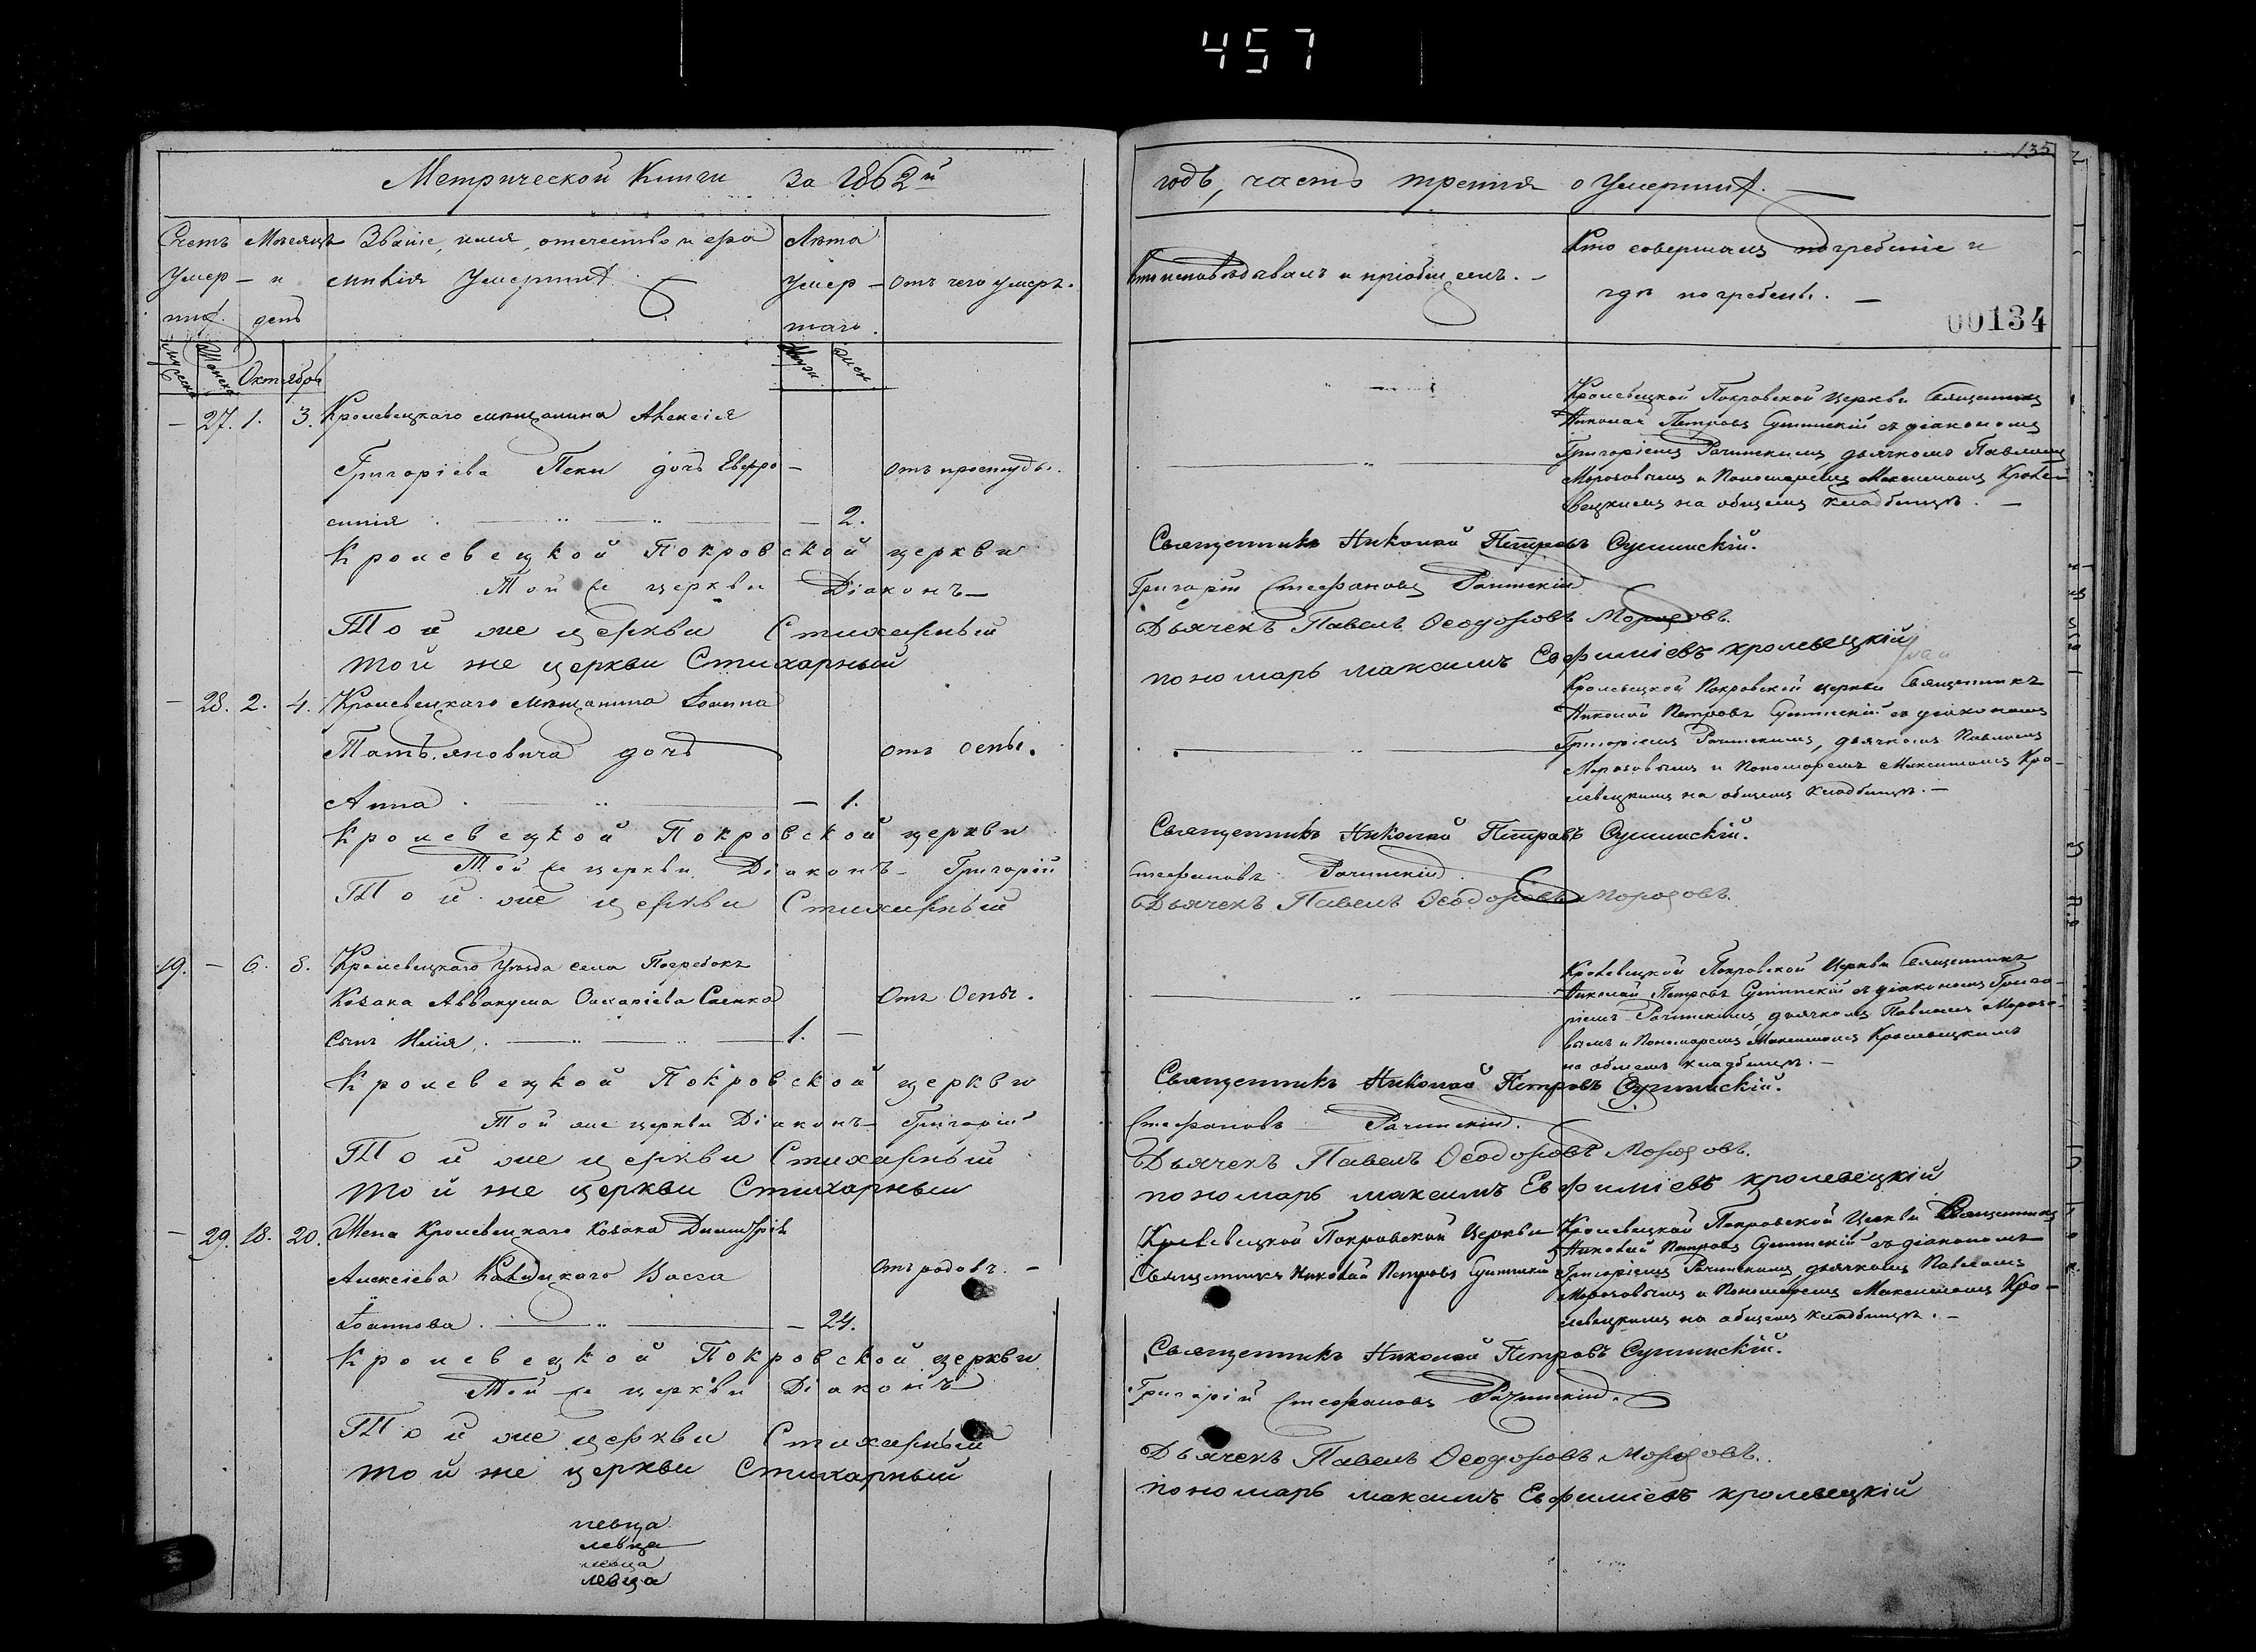 457
135
Метрической Книги за 1862й
годъ, часть третія о Умершихъ.
Счетъ умер-шихъ.
Мѣсяцъ и день
Званіе, имя, отечество и фамилія Умершихъ
Лѣта умер-шаго.
Отъ чего умеръ.
Кто исповѣдывалъ и пріобщалъ.
Кто совершалъ погребеніе и
гдѣ погребены.
00134
Октябрь
— 27. 1. 3. Кролевецкаго мѣщанина Алексія
Григоріева Пеки дочь Евфро-
синія — 2.
отъ простуды.
Кролевецкой Покровской Церкви Священникъ
Николай Петровъ Сушинскій съ діакономъ
Григоріемъ Рачинскимъ дьячкомъ Павломъ
Морозовымъ и Пономаремъ Максимомъ Кроле-
вецкимъ на общемъ кладбищѣ.
Кролевецкой Покровской церкви Священникъ Николай Петровъ Сушинскій.
Той же церкви Діаконъ Григорій Стефановъ Рачинскій
Той же церкви Стихарный Дьячекъ Павелъ Ѳеодоровъ Морозовъ.
той же церкви Стихарный пономарь максимъ Евфиміевъ кролевецкій
— 28. 2. 4. Кролевецкаго мѣщанина Іоанна
Татьяновича дочь
Анна — 1.
отъ оспы.
Кролевецкой Покровской церкви Священникъ
Николай Петровъ Сушинскій съ діакономъ
Григоріемъ Рачинскимъ, дьячкомъ Павломъ
Морозовымъ и Пономаремъ Максимомъ Кро-
левецкимъ на общемъ кладбищѣ.
Кролевецкой Покровской церкви Священникъ Николай Петровъ Сушинскій.
Той же церкви Діаконъ Григорій Стефановъ Рачинскій.
Той же церкви Стихарный Дьячекъ Павелъ Ѳеодоровъ Морозовъ.
19. — 6. 8. Кролевецкаго Уѣзда села Погребокъ
Козака Аввакума Саенка
Сынъ Илія. 1. —
Отъ Оспы.
Кролевецкой Покровской Церкви Священникъ
Николай Петровъ Сушинскій съ діакономъ Григо-
ріемъ Рачинскимъ, дьячкомъ Павломъ Морозо-
вымъ и Пономаремъ Максимомъ Кролевецкимъ
на общемъ кладбищѣ.
Кролевецкой Покровской церкви Священникъ Николай Петровъ Сушинскій.
Той же церкви Діаконъ Григорій Стефановъ Рачинскій.
Той же церкви Стихарный Дьячекъ Павелъ Ѳеодоровъ Морозовъ.
той же церкви Стихарный пономарь максимъ Евфиміевъ кролевецкій
— 29. 18. 20. Жена Кролевецкаго Козака Димитрія
Алексіева Васса
Іоаннова. — 24.
Отъ родовъ.
Кролевецкой Покровской Церкви
Священникъ Николай Петровъ Сушинскій
Кролевецкой Покровской Церкви Священникъ
Николай Петровъ Сушинскій съ діакономъ
Григоріемъ Рачинскимъ дьячкомъ Павломъ
Морозовымъ и Пономаремъ Максимомъ Кро-
левецкимъ на общемъ кладбищѣ.
Кролевецкой Покровской церкви Священникъ Николай Петровъ Сушинскій.
Той же церкви Діаконъ Григорій Стефановъ Рачинскій.
Той же церкви Стихарный Дьячекъ Павелъ Ѳеодоровъ Морозовъ.
той же церкви Стихарный пономарь максимъ Евфиміевъ кролевецкій
левца
левца
левца
левца